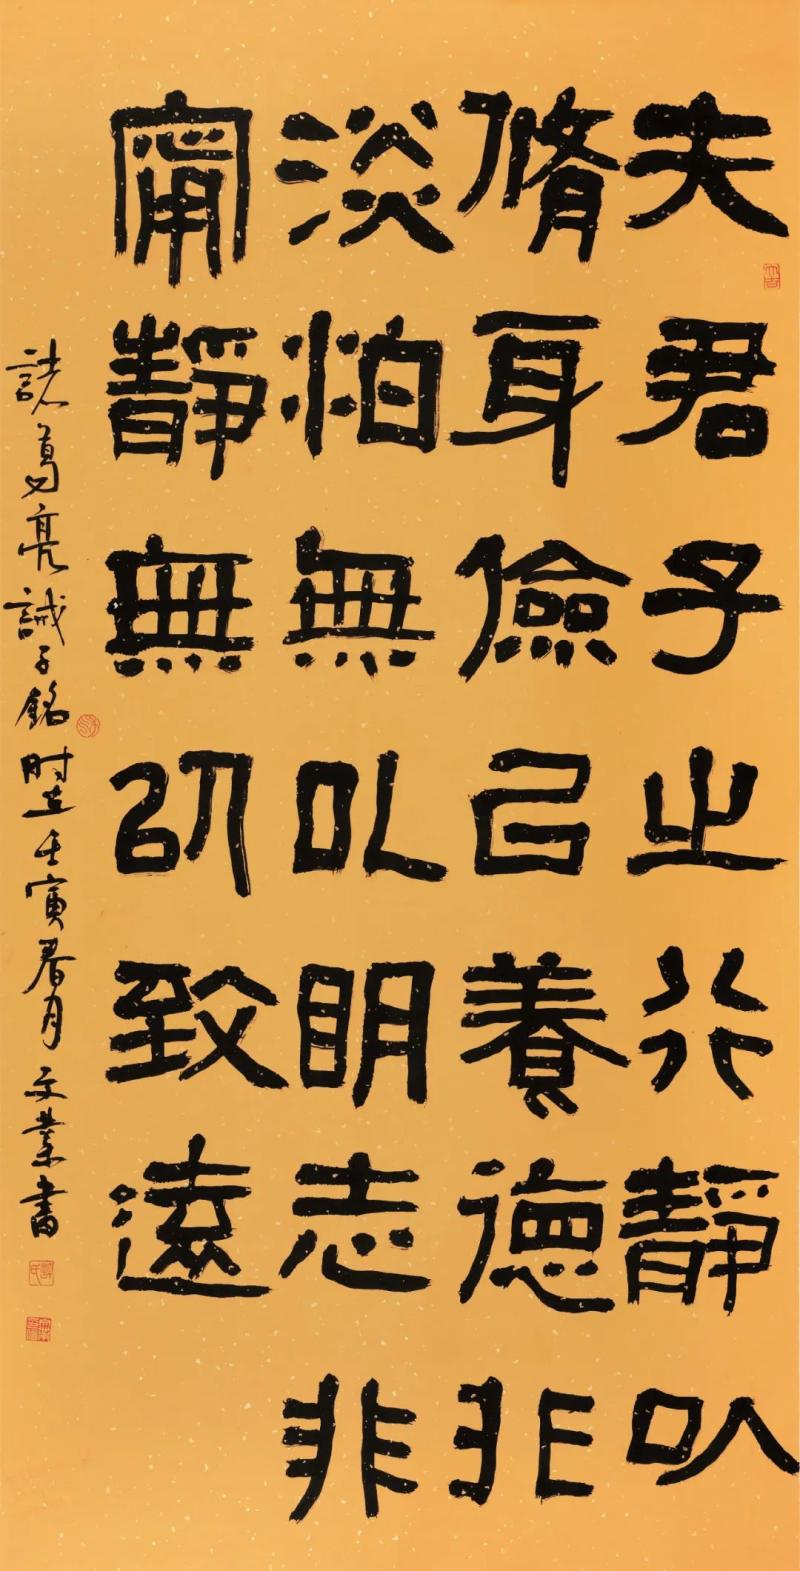 夫君子之行靜以
脩身儉以養德非
淡怕無以明志非
甯靜無以致遠
諸葛亮誡子銘时在壬寅春月文業書
大吉